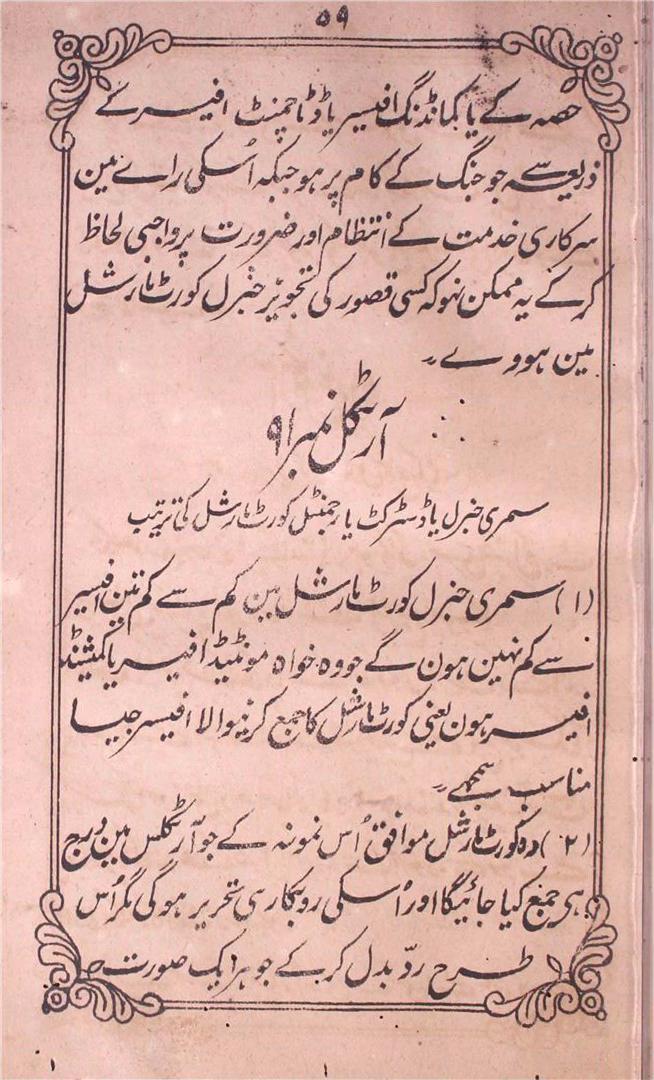 ۵۹
حصہ کے یا کمانڈنگ افیسر یا ڈٹاچمنٹ افیسر کے
ذریعہ سے جو جنگ کے کام پر ہو جبکہ اُسکی راے مین
سرکاری خدمت کے انتظام اور ضرورت پر واجبی لحاظ
کر کے یہ ممکن نہو کہ کسی قصور کی تجویز جنرل کورٹ مارشل
مین ہووے۔
آرٹکل نمبر ۹۱
سمری جنرل یا ڈسٹرکٹ یا رجمنٹل کورٹ مارشل کی ترتیب
(۱) سمری جنرل کورٹ مارشل مین کم سے کم تین افیسر
سے کم نہین ہون گے جو وہ خواہ مونٹیڈ افیسر یا کمیشنڈ
افیسر ہون یعنی کورٹ مارشل کا جمع کرنیوالا افیسر جیسا
مناسب سمجھے۔
(۲) وہ کورٹ مارشل موافق اُس نمونہ کے جو آرٹکلس مین درج
ہی جمع کیا جائیگا اور اُسکی روبکاری تحریر ہوگی مگر اُس
طرح ردّ بدل کر کے جو ہر ایک صورت
۱ ۱